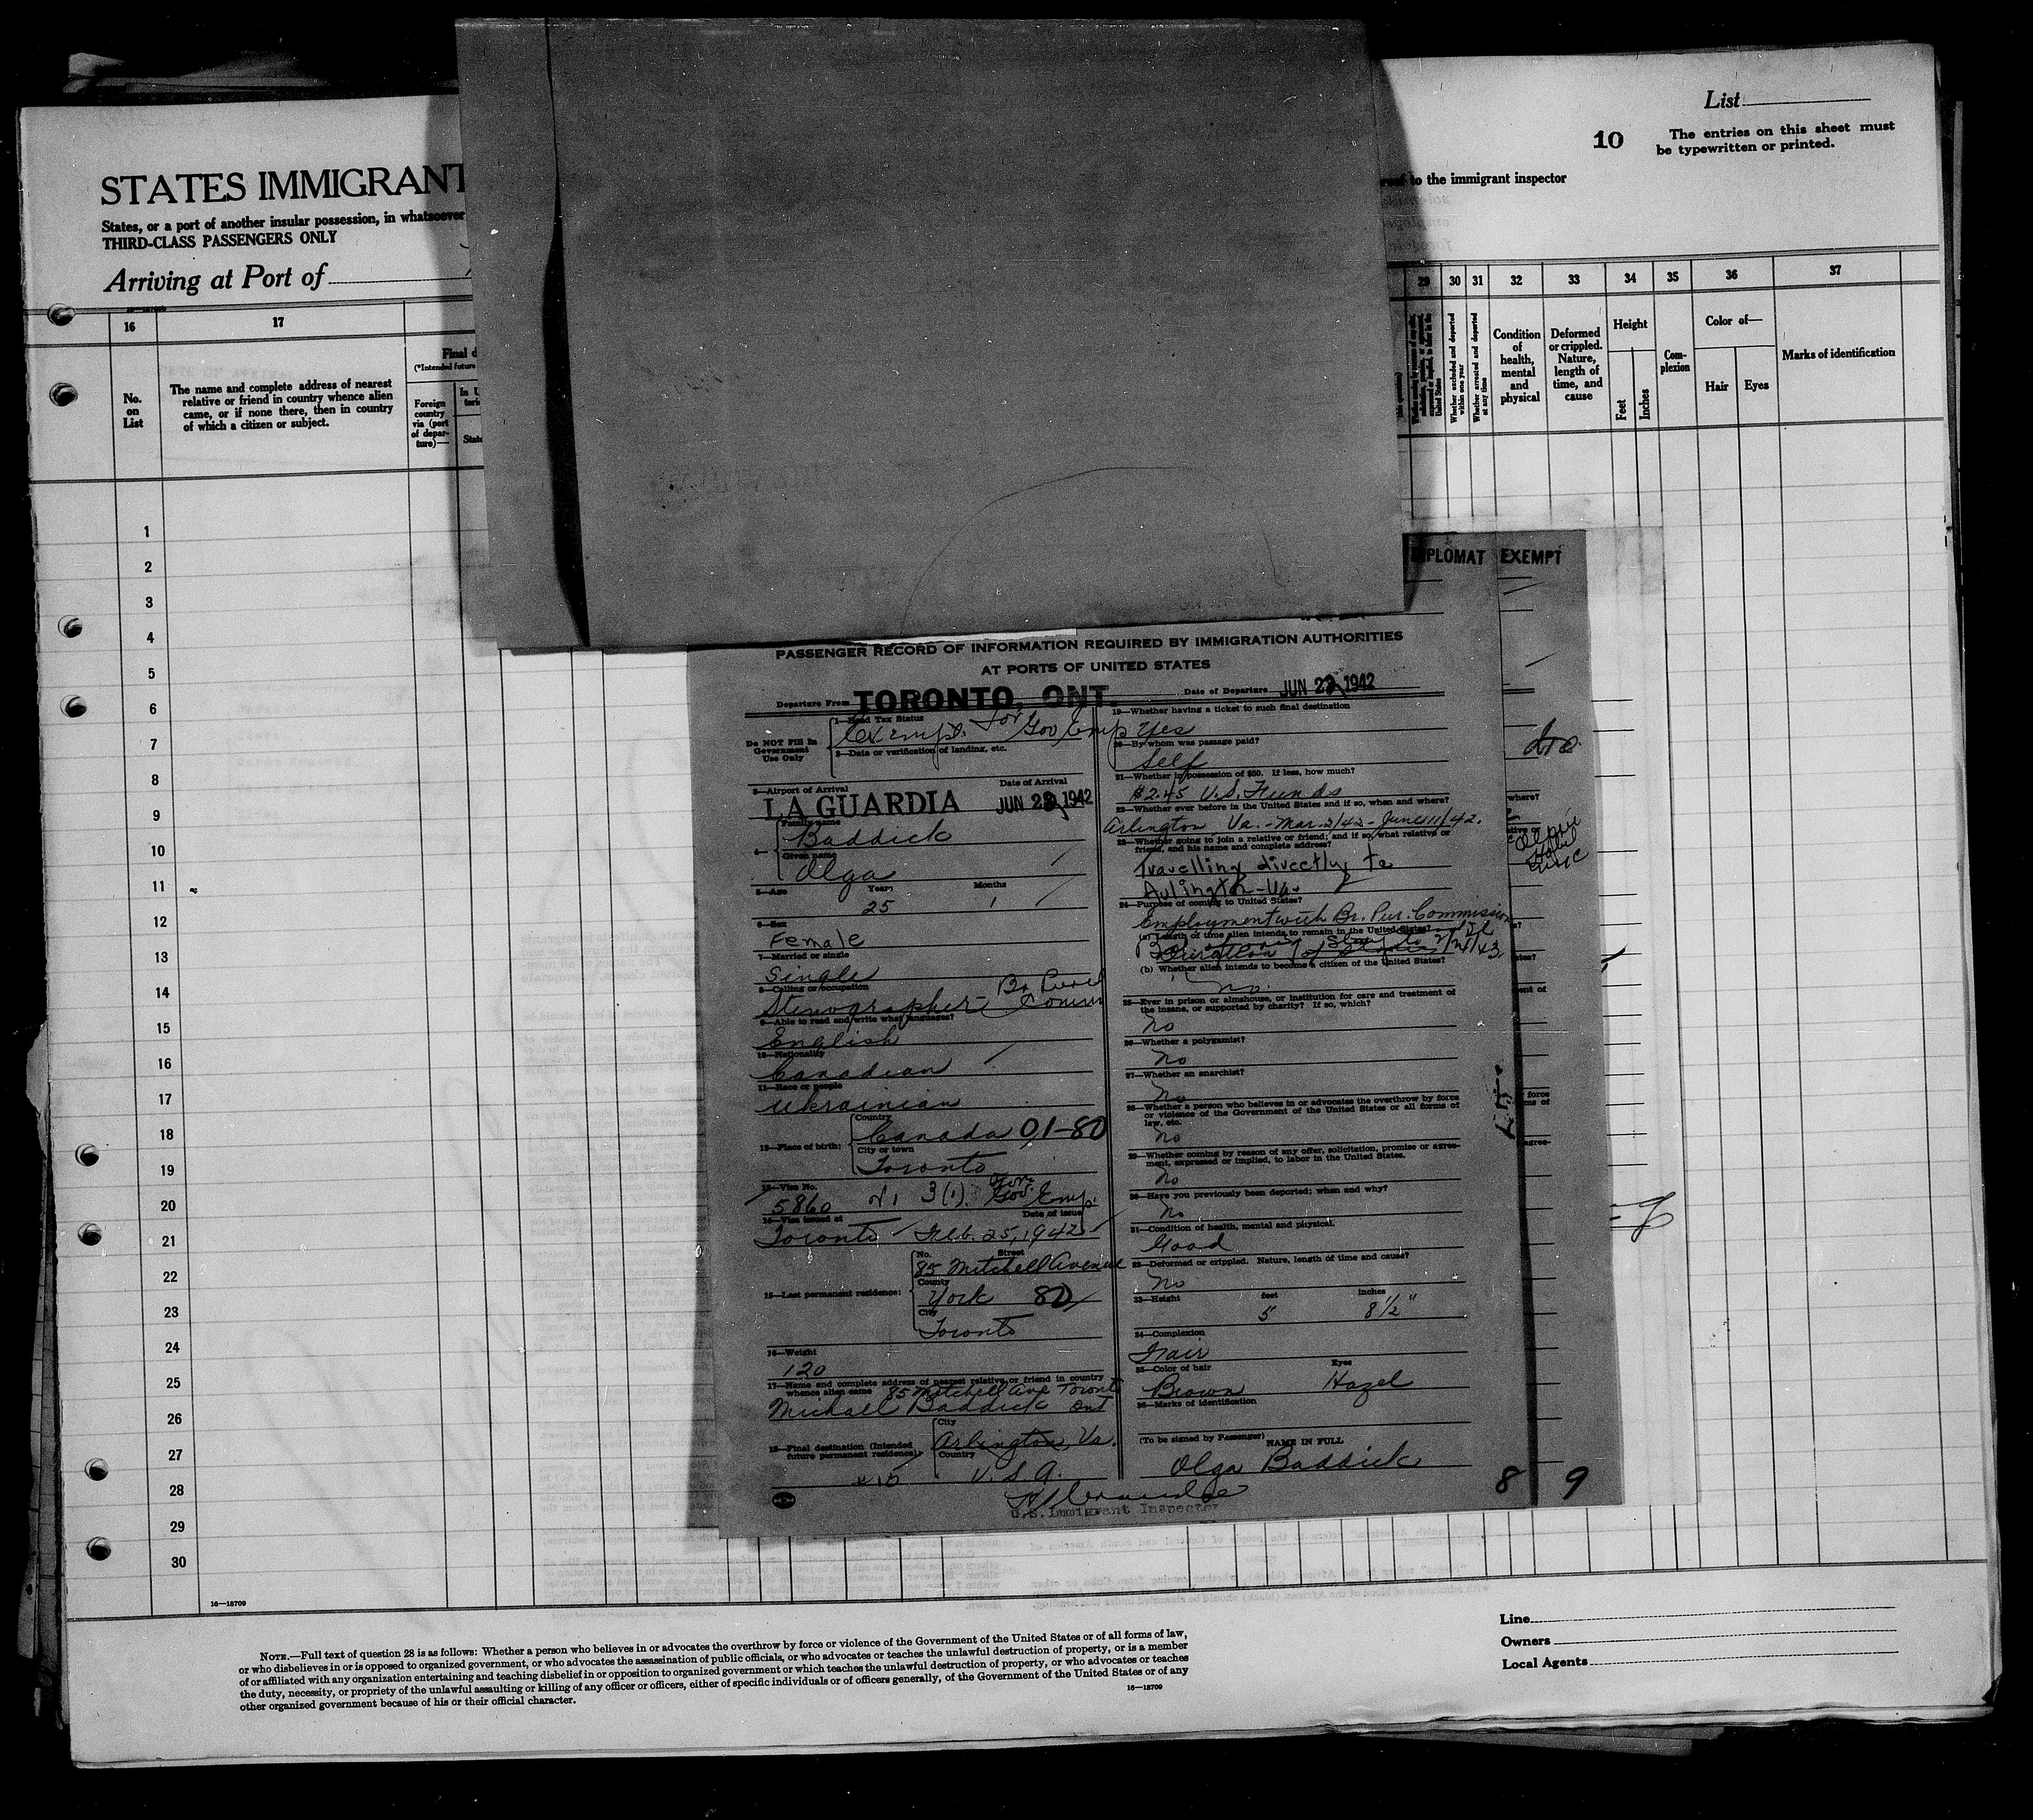 List
10
The entries on this sheet must
be typewritten or printed.
STATES IMMIGRANT
to the immigrant inspector
States, or a port of another insular possession, in whatsoever
THIRD-CLASS PASSENGERS ONLY
Arriving at Port of
16 17
29 30 31 32 33 34 35 36 37
No.
on
List
The name and complete address of nearest
relative or friend in country whence alien
came, or if none there, then in country
of which a citizen or subject.
Final d
(*Intended future
Foreign
country
via (port
of depar-
ture)—
State
United States
Whether excluded and deported
within one year
Whether arrested and deported
at any time
Condition
of
health,
mental
and
physical
Deformed
or crippled.
Nature,
length of
time, and
cause
Height
Feet
Inches
Com-
plexion
Color of—
Hair
Eyes
Marks of identification
1
2
3
4
5
6
7
8
9
10
11
12
13
14
15
16
17
18
19
20
21
22
23
24
25
26
27
28
29
30
PLOMAT EXEMPT
PASSENGER RECORD OF INFORMATION REQUIRED BY IMMIGRATION AUTHORITIES
AT PORTS OF UNITED STATES
Departure From TORONTO, ONT. Date of Departure JUN 22 1942
Do NOT Fill In
Government
Use Only
1—Head Tax Status
Exempt for Gov Emp
2—Data or verification of landing, etc.
3—Airport of Arrival Date of Arrival
LA GUARDIA JUN 22 1942
4—
Family name
Baddick
Given name
Olga
5—Age Years Months
25 1
6—Sex
Female
7—Married or single
Single
8—Calling or occupation
Stenographer - Br. Comm
9—Able to read and write what languages?
English
10—Nationality
Canadian
11—Race or people
Ukrainian
12—Place of birth:
Country
Canada 01-80
City or town
Toronto
13—Visa No.
5860 3(1). Gov. Emp.
14—Visa issued at Date of issue
Toronto Feb. 25, 1942
15—Last permanent residence:
No. Street
85 Mitchell Avenue
County
York 80
City
Toronto
16—Weight
120
17—Name and complete address of nearest relative or friend in country
whence alien came 85 Mitchell Ave Toronto
Michael Baddick Ont
18—Final destination (Intended
future permanent residence)
City
Arlington, Va.
Country
U.S.A.
19—Whether having a ticket to such final destination
Yes
20—By whom was passage paid?
Self
21—Whether in possession of $50. If less, how much?
$2.45 U.S. Funds
22—Whether ever before in the United States and if so, when and where?
Arlington Va. - Mar. 2/42 - June 11/42.
23—Whether going to join a relative or friend; and if so, what relative or
friend, and his name and complete address?
Travelling directly to
Arlington - Va.
24—Purpose of coming to United States?
Employment with Br. Pur. Commission
(a) Length of time alien intends to remain in the United States?
Duration of
(b) Whether alien intends to become a citizen of the United States?
no.
25—Ever in prison or almshouse, or institution for care and treatment of
the insane, or supported by charity? If so, which?
No
26—Whether a polygamist?
No
27—Whether an anarchist?
No
28—Whether a person who believes in or advocates the overthrow by force
or violence of the Government of the United States or all forms of
law, etc.
No
29—Whether coming by reason of any offer, solicitation, promise or agree-
ment, expressed or implied, to labor in the United States.
No
30—Have you previously been deported; when and why?
No
31—Condition of health, mental and physical.
Good
32—Deformed or crippled. Nature, length of time and cause?
No
33—Height feet inches
5 8 1/2"
34—Complexion
Fair
35—Color of hair Eyes
Brown Hazel
36—Marks of identification
(To be signed by Passenger) NAME IN FULL
Olga Baddick
U.S. Immigrant Inspector
8 9
16—18709
Line
Owners
Local Agents
NOTE.—Full text of question 28 is as follows: Whether a person who believes in or advocates the overthrow by force or violence of the Government of the United States or of all forms of law,
or who disbelieves in or is opposed to organized government, or who advocates the assassination of public officials, or who advocates or teaches the unlawful destruction of property, or is a member
of or affiliated with any organization entertaining and teaching disbelief in or opposition to organized government or which teaches the unlawful destruction of property, or who advocates or teaches
the duty, necessity, or propriety of the unlawful assaulting or killing of any officer or officers, either of specific individuals or of officers generally, of the Government of the United States or of any
other organized government because of his or their official character.
16—18709